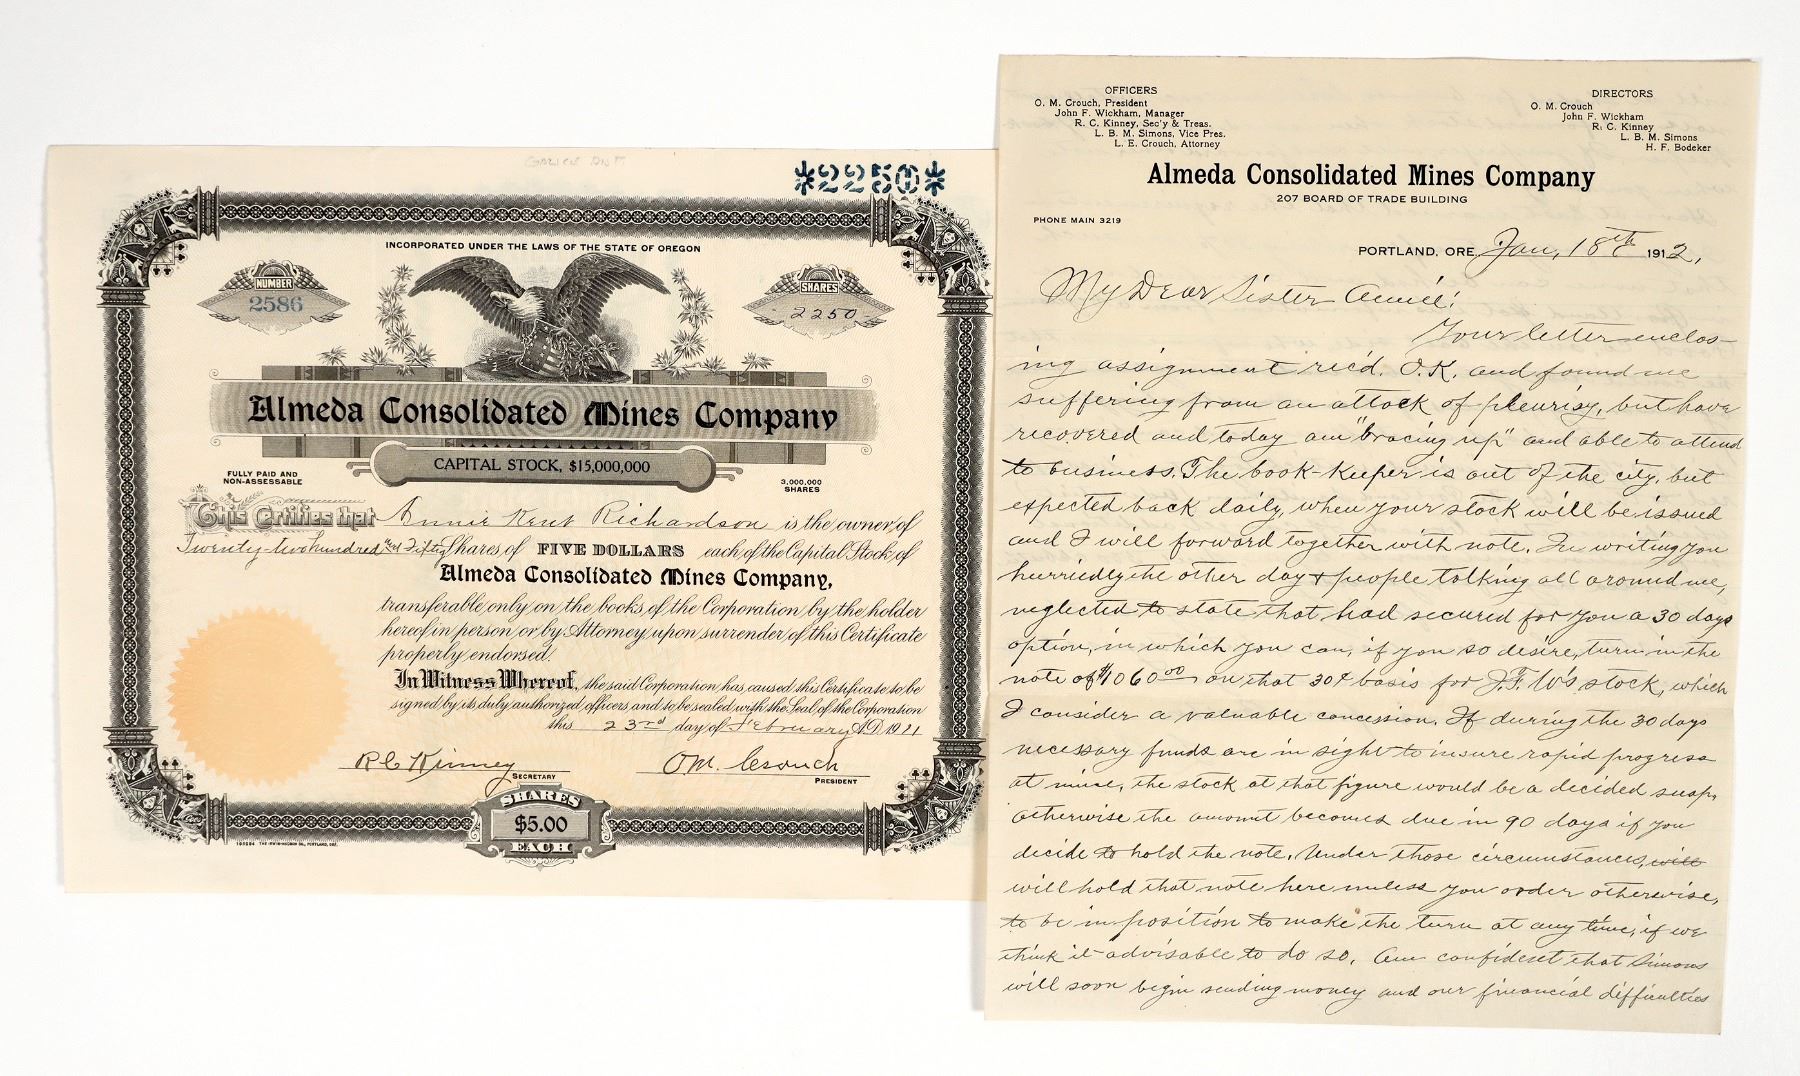 *2250*
INCORPORATED UNDER THE LAWS OF THE STATE OF OREGON
NUMBER
2586
SHARES
2250
Almeda Consolidated Mines Company
CAPITAL STOCK, $15,000,000
FULLY PAID AND
NON-ASSESSABLE
3,000,000
SHARES
This Certifies that Annie Kent Richardson is the owner of
Twenty-two hundred and Fifty Shares of FIVE DOLLARS each of the Capital Stock of
Almeda Consolidated Mines Company,
transferable only on the books of the Corporation by the holder
hereof in person or by Attorney upon surrender of this Certificate
properly endorsed.
In Witness Whereof, the said Corporation has caused this Certificate to be
signed by its duly authorized officers and to be sealed with the Seal of the Corporation
this 23rd day of February A.D. 1911
R C Kinney
SECRETARY
O.M. Crouch
PRESIDENT
SHARES
$5.00
EACH
OFFICERS
O. M. Crouch, President
John F. Wickham, Manager
R. C. Kinney, Sec'y & Treas.
L. B. M. Simons, Vice Pres.
L. E. Crouch, Attorney
DIRECTORS
O. M. Crouch
John F. Wickham
R. C. Kinney
L. B. M. Simons
H. F. Bodeker
Almeda Consolidated Mines Company
207 BOARD OF TRADE BUILDING
PHONE MAIN 3219
PORTLAND, ORE. Jan, 18th 1912,
My Dear Sister Annie:
Your letter enclos-
ing assignment rec'd. O.K. and found me
suffering from an attack of pleurisy, but have
recovered and today am "bracing up" and able to attend
to business. The book-keeper is out of the city, but
expected back daily, when your stock will be issued
and I will forward together with note. In writing you
hurriedly the other day & people talking all around me,
neglected to state that had secured for you a 30 days
option, in which you can, if you so desire, turn in the
note of $1060.00 on that 30¢ basis for J.F.W's stock, which
I consider a valuable concession. If during the 30 days
necessary funds are in sight to insure rapid progress
at mine, the stock at that figure would be a decided snap,
otherwise the amount becomes due in 90 days if you
decide to hold the note. Under those circumstances, will
will hold that note here unless you order otherwise,
to be in position to make the turn at any time, if we
think it advisable to do so. Am confident that Simons
will soon begin sending money and our financial difficulties